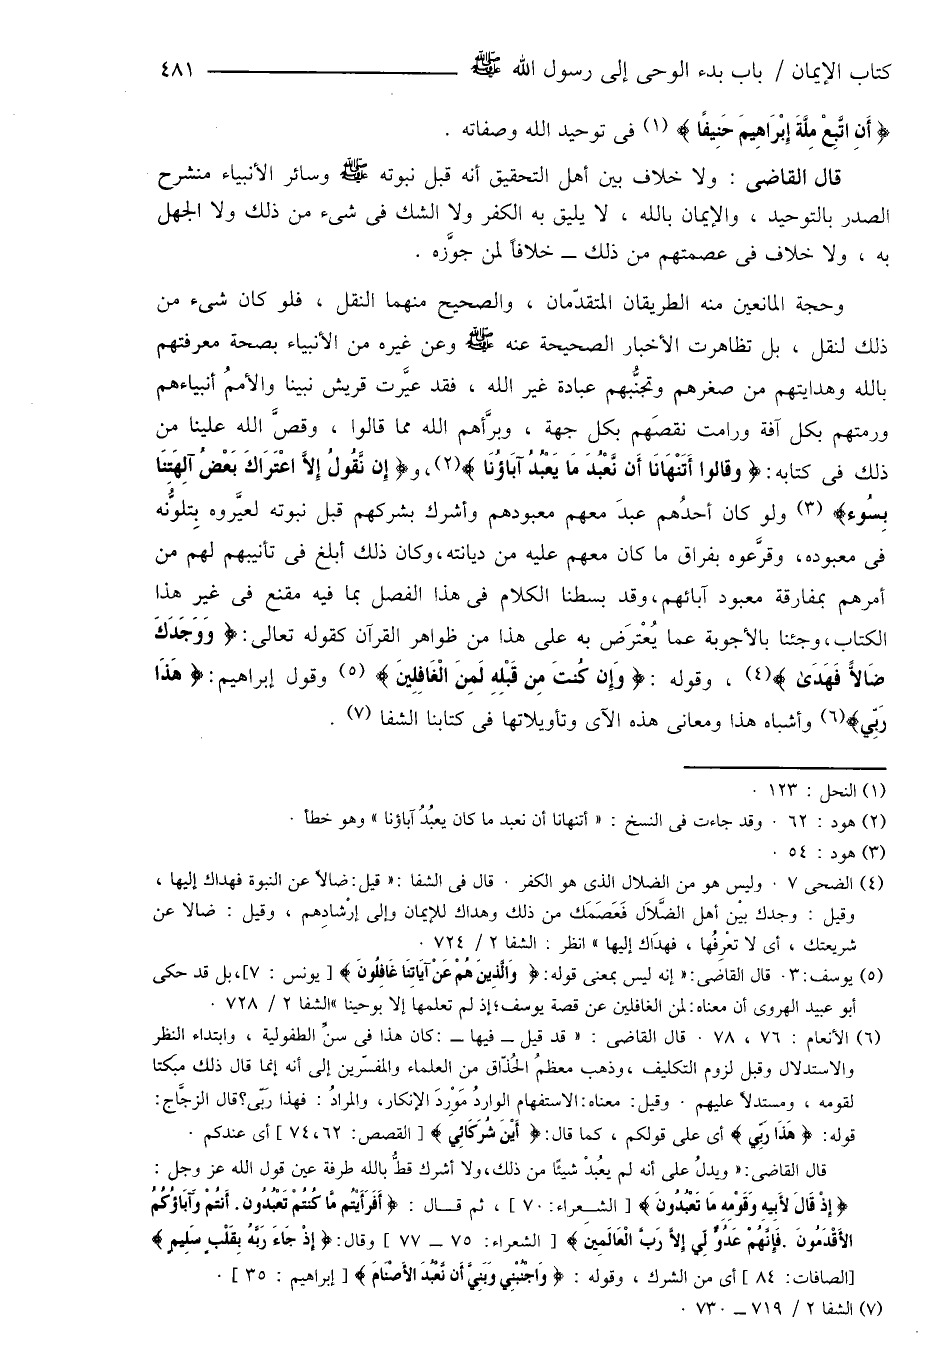 كتاب الإيمان / باب بدء الوحى إلى رسول الله ﷺ ــــــــــــ ٤٨١
﴿ أَنِ اتَّبِعْ مِلَّةَ إِبْرَاهِيمَ حَنِيفًا ﴾ (١) فى توحيد الله وصفاته .
قال القاضى : ولا خلاف بين أهل التحقيق أنه قبل نبوته ﷺ وسائر الأنبياء منشرح
الصدر بالتوحيد ، والإيمان بالله ، لا يليق به الكفر ولا الشك فى شىء من ذلك ولا الجهل
به ، ولا خلاف فى عصمتهم من ذلك ــ خلافاً لمن جوَّزه .
وحجة المانعين منه الطريقان المتقدّمان ، والصحيح منهما النقل ، فلو كان شىء من
ذلك لنقل ، بل تظاهرت الأخبار الصحيحة عنه ﷺ وعن غيره من الأنبياء بصحة معرفتهم
بالله وهدايتهم من صغرهم وتجنُّبهم عبادة غير الله ، فقد عيَّرت قريش نبينا والأممُ أنبياءهم
ورمتهم بكل آفة ورامت نقصَهم بكل جهة ، وبرَّأهم الله مما قالوا ، وقصَّ الله علينا من
ذلك فى كتابه: ﴿ وقالوا أَتَنْهَانَا أَن نَّعْبُدَ مَا يَعْبُدُ آبَاؤُنَا ﴾(٢)،و﴿ إِن نَّقُولُ إِلاَّ اعْتَرَاكَ بَعْضُ آلِهَتِنَا
بِسُوءٍ﴾ (٣) ولو كان أحدُهم عبدَ معهم معبودهم وأشرك بشركهم قبل نبوته لعيَّروه بِتلونُّه
فى معبوده، وقرَّعوه بفراق ما كان معهم عليه من ديانته،وكان ذلك أبلغ فى تأنيبهم لهم من
أمرهم بمفارقة معبود آبائهم،وقد بسطنا الكلام فى هذا الفصل بما فيه مقنع فى غير هذا
الكتاب،وجئنا بالأجوبة عما يُعْترَض به على هذا من ظواهر القرآن كقوله تعالى:﴿ وَوَجَدَكَ
ضَالاًّ فَهَدَىٰ ﴾(٤) ، وقوله :﴿ وَإِن كُنتَ مِن قَبْلِهِ لَمِنَ الْغَافِلِينَ ﴾ (٥) وقول إبراهيم:﴿ هَذَا
رَبِّي﴾(٦) وأشباه هذا ومعانى هذه الآى وتأويلاتها فى كتابنا الشفا (٧) .
(١) النحل : ١٢٣ .
(٢) هود : ٦٢ . وقد جاءت فى النسخ : « أتنهانا أن نعبد ما كان يعبُدُ آباؤنا » وهو خطأ .
(٣) هود : ٥٤ .
(٤) الضحى ٧ . وليس هو من الضلال الذى هو الكفر . قال فى الشفا :« قيل:ضالاً عن النبوة فهداك إليها ،
وقيل : وجدك بيْن أهل الضَّلاَل فَعَصَمَك من ذلك وهداك للإيمان وإلى إرْشادهم ، وقيل : ضالا عن
شريعتك ، أى لا تعْرِفُها ، فهدَاك إليها » انظر : الشفا ٢ / ٧٢٤ .
(٥) يوسف:٣. قال القاضى:« إنه ليس بمعنى قوله:﴿ وَالَّذِينَ هُمْ عَنْ آيَاتِنَا غَافِلُونَ ﴾ [ يونس : ٧]،بل قد حكى
أبو عبيد الهروى أن معناه:لمن الغافلين عن قصة يوسف؛إذ لم تعلمها إلا بوحينا »الشفا ٢ / ٧٢٨ .
(٦) الأنعام : ٧٦ ، ٧٨ . قال القاضى : « قد قيل ــ فيها ــ :كان هذا فى سنِّ الطفولية ، وابتداء النظر
والاستدلال وقبل لزوم التكليف ،وذهب معظمُ الحُذّاق من العلماء والمفسّرين إلى أنه إنما قال ذلك مبكتا
لقومه ، ومستدلاً عليهم . وقيل: معناه:الاستفهام الواردُ مَوْردَ الإنكار، والمرادُ : فهذا ربّى؟قال الزجَّاج:
قوله: ﴿ هَذَا رَبِّي ﴾ أى على قولكم ، كما قال:﴿ أَيْنَ شُرَكَائِي ﴾ [ القصص: ٦٢، ٧٤ ] أى عندكم .
قال القاضى:« ويدلُ على أنه لم يعُبدْ شيئًا من ذلك،ولا أشرك قطُّ بالله طرفة عين قول الله عز وجل :
﴿ إِذْ قَالَ لأَبِيهِ وَقَوْمِهِ مَا تَعْبُدُونَ ﴾ [ الشـعراء: ٧٠ ] ، ثم قــال : ﴿ أَفَرَأَيْتُم مَّا كُنتُمْ تَعْبُدُونَ. أَنتُمْ وَآبَاؤُكُمُ
الأَقْدَمُونَ .فَإِنَّهُمْ عَدُوٌّ لِّي إِلاَّ رَبَّ الْعَالَمِينَ ﴾ [ الشعراء: ٧٥ ــ ٧٧ ] وقال:﴿ إِذْ جَاءَ رَبَّهُ بِقَلْبٍ سَلِيمٍ ﴾
[الصافات: ٨٤ ] أى من الشرك ، وقوله : ﴿ وَاجْنُبْنِي وَبَنِيَّ أَن نَّعْبُدَ الأَصْنَامَ ﴾ [ إبراهيم : ٣٥ ] .
(٧) الشفا ٢ / ٧١٩ ــ ٧٣٠ .